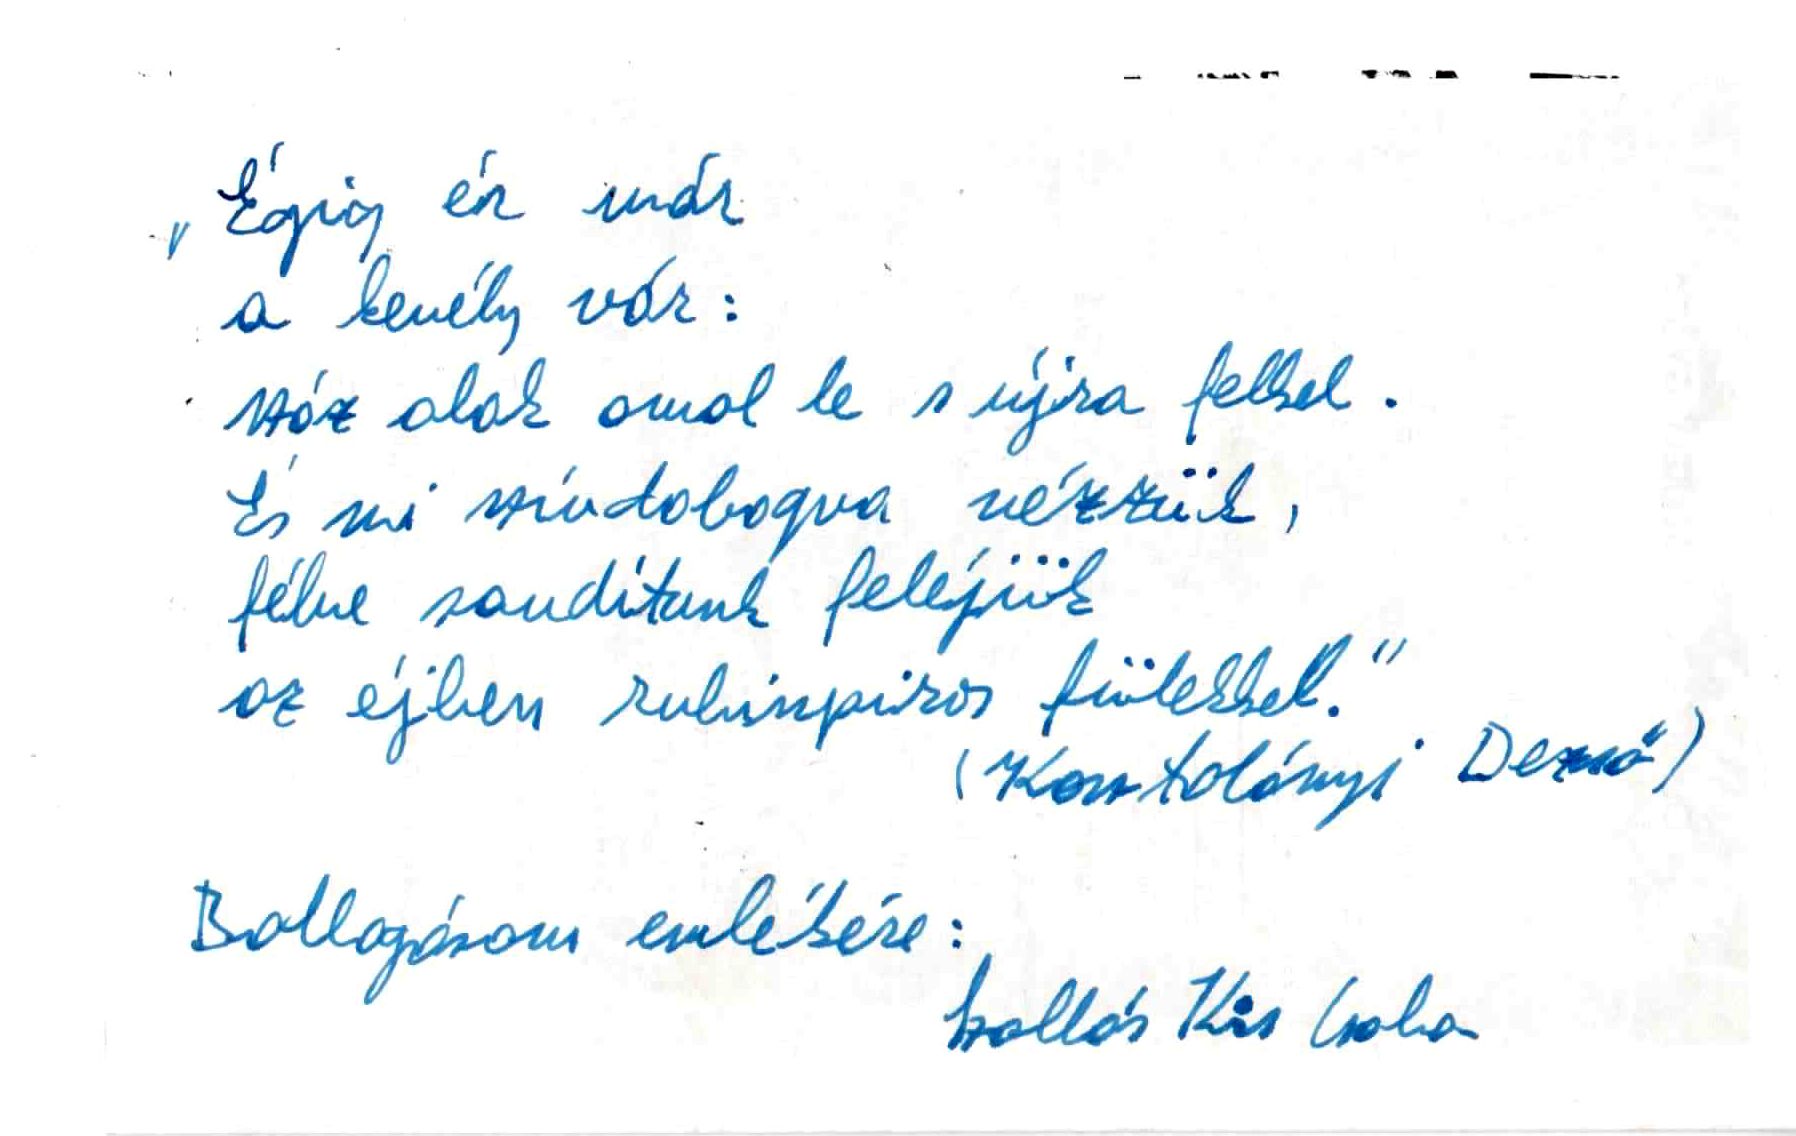 „Égig ér már
a kevély vár:
száz alak omol le s újra felkel.
És mi szívdobogva nézzük,
félve sandítunk feléjük
az éjben rubinpiros fülekkel."
(Kosztolányi Dezső)
Ballagásom emlékére:
Szallós Kis Csaba